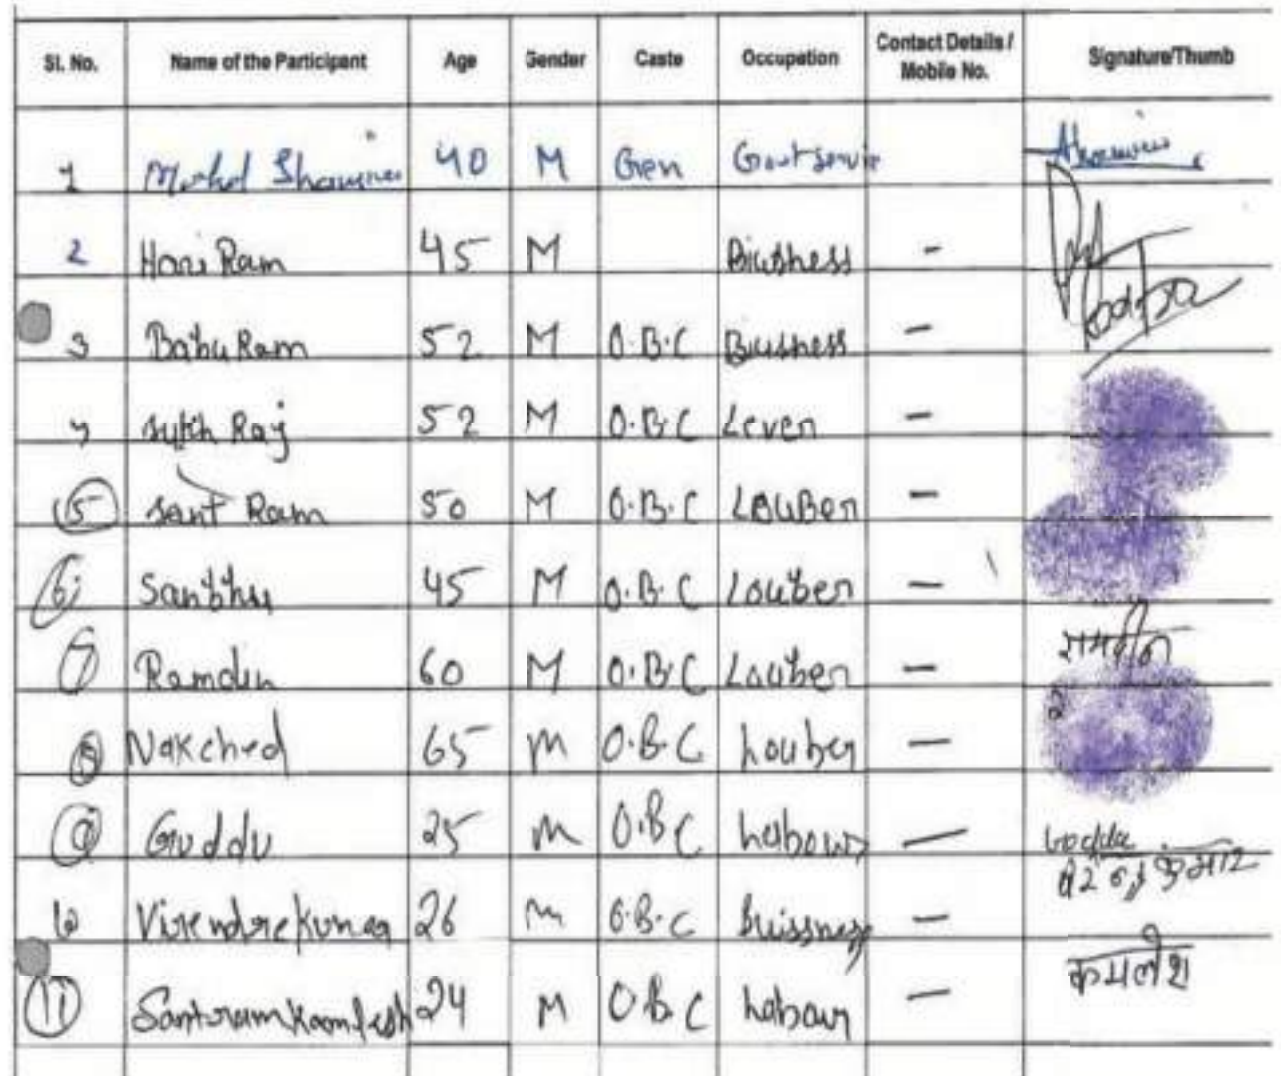 Sl. No. Name of the Participant Age Gender Caste Occupation Contact Details / Mobile No. Signature/Thumb
1 40 M Gen Govt servic
2 Hari Ram 45 M Biushess -
3 Babu Ram 52 M O.B.C Biushess -
Raj 52 M O.B.C Leven -
5 sant Ram 50 M O.B.C LauBen -
6 Sanbhu 45 M O.B.C Louben -
7 Ramdin 60 M O.B.C Lauben - रामदीन
8 Nakched 65 M O.B.C Louber -
9 Guddu 25 M O.B.C Labour -
10 Virendrekumar 26 M O.B.C Buissness - वीरेन्द्र कुमार
11 Santram Kamlesh 24 M O.B.C Labour - कमलेश